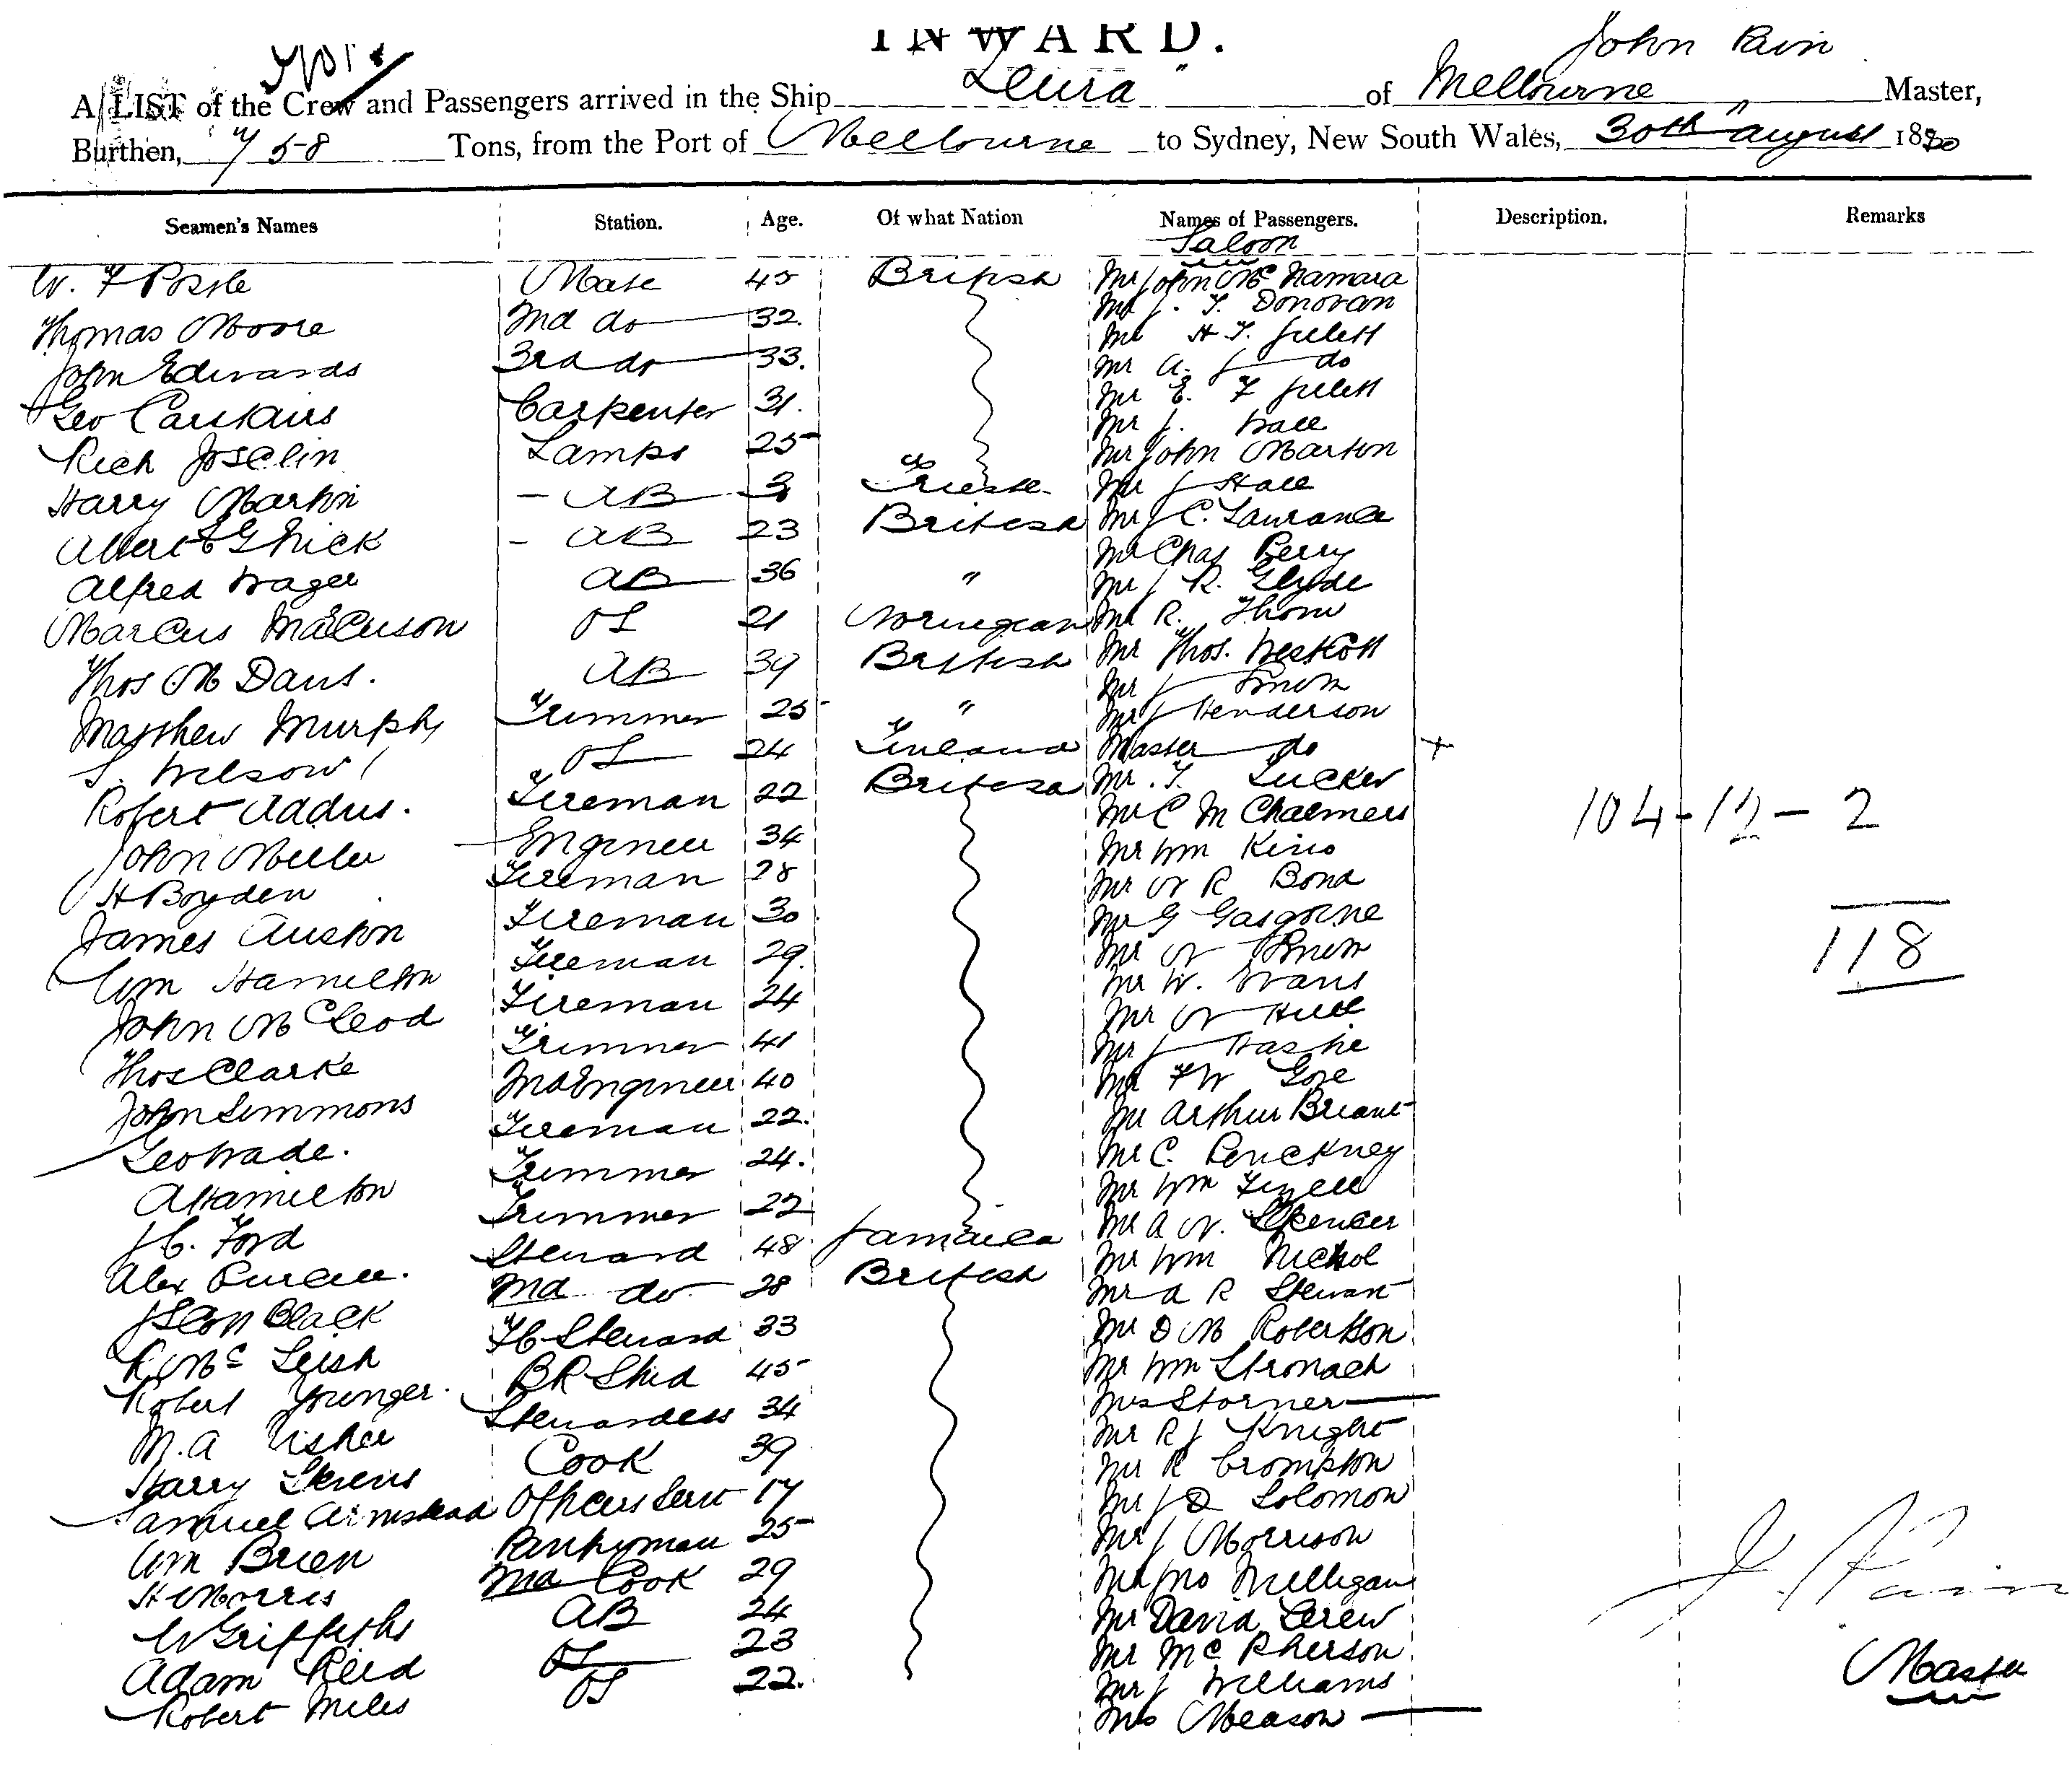 INWARD.
John Pain
A LIST of the Crew and Passengers arrived in the Ship "Leura" of Melbourne Master,
Burthen, 758 Tons, from the Port of Melbourne to Sydney, New South Wales, 30th August 1880
Seamen's Names Station. Age. Of what Nation Names of Passengers. Description. Remarks
Saloon
Mate 45 British Mr John McNamara
Thomas Moore 2nd do 32. Mr J. T. Donovan
John Edwards 3rd do 33. Mr H. T.
Geo Carstairs Carpenter 31. Mr A. J do
Rich Joscelin Lamps 25 Mr E. F
Harry Martin - AB Trieste Mr J.
Albert G - AB 23 British Mr John Marton
Alfred Wager AB 36 " Mr J Hall
Marcus OS 21 Norwegian Mr J C. Laurance
Thos M Davis. AB 39 British Mr Chas Perry
Matthew Murphy Trimmer 25 " Mr J R. Clyde
S. Wilson OS 24 Finland Mr R. Thom
Robert Fireman 22 British Mr Thos. Westcott
John Miller Engineer 34 Mr J
H Boyden Fireman 28 Mr J Henderson
James Auston Fireman 30 Master do +
Wm Hamilton Fireman 29. Mr. T. Tucker
John McLeod Fireman 24 Mr C M Chalmers
Thos Clarke Trimmer 41 Mr Wm King
John Simmons 2nd Engineer 40 Mr W R Bond
Geo Wade. Fireman 22. Mr G Gasgoine
A Hamilton Trimmer 24. Mr W
J C. Ford Trimmer 22 Mr W. Evans
Alex Steward 48 Jamaica Mr W Hill
J Black 2nd do 28 British Mr J
R McLeish F C Steward 33 Mr F W Gore
Robert Younger. B R Stwd 45 Mr Arthur Briant
M. A Usher Stewardess 34 Mr C. Penckney
Harry Cook 39 Mr Wm
Samuel Armstead Officers Servt 17 Mr A W. Spencer
Wm Brien Pantryman 25 Mr Wm Nichol
H Morris 2nd Cook 29 Mr A R Stewart
W Griffiths AB 24 Mr D M Robertson
Adam Reid OS 23 Mr Wm Stronach
Robert Miles OS 22. Mrs Storner
Mr R J Knight
Mr R Crompton
Mr J D Solomon
Mr J Morrison
Mr Jno Milligan
Mr David Drew
Mr McPherson
Mr J Williams
Mrs Meason
104-12-2
118
J. Pain
Master